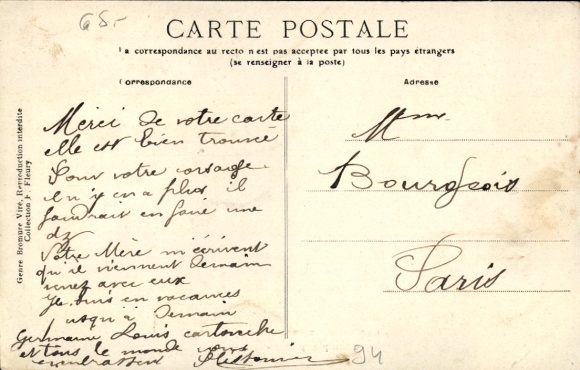 65.-
CARTE POSTALE
La correspondance au recto n'est pas acceptée par tous les pays étrangers
(se renseigner à la poste)
Correspondance
Adresse
Genre Bromure Viré, Reproduction interdite
Collection F. Fleury
Merci de votre carte
elle est bien trouvée
Pour votre corsage
il n'y en a plus il
faudrait en faire une
dz
Votre Mère m'écrivent
qu'il viennent demain
avec eux
Je suis en vacances
jusqu'à demain
Germaine Louis
et tous le monde vous
embrassent
Mme
Bourgeois
Paris
94